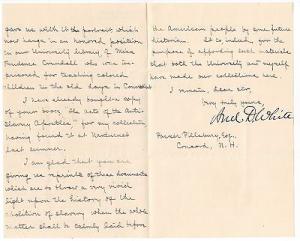 gave us with the portrait which
now hangs in an honored position
in our University library, of Miss
Prudence Crandall who was im-
prisoned for teaching colored
children in the old days in Connecticut
I have already bought a copy
of your book, The Acts of the Anti-
Slavery Apostles" for my collection
having found it at
last summer.
I am glad that you are
giving us reprints of these documents
which are to throw a very vivid
light upon the history of the
abolition of slavery when the whole
matter shall be calmly laid before
the American people by one future
historian. It is, indeed, for the
purpose of affording such material
that both the University and myself
have made our collections here.
I remain, dear sir,
Very truly yours,
And. D. White
Parker Pillsbury, Esq.,
Concord, N. H.